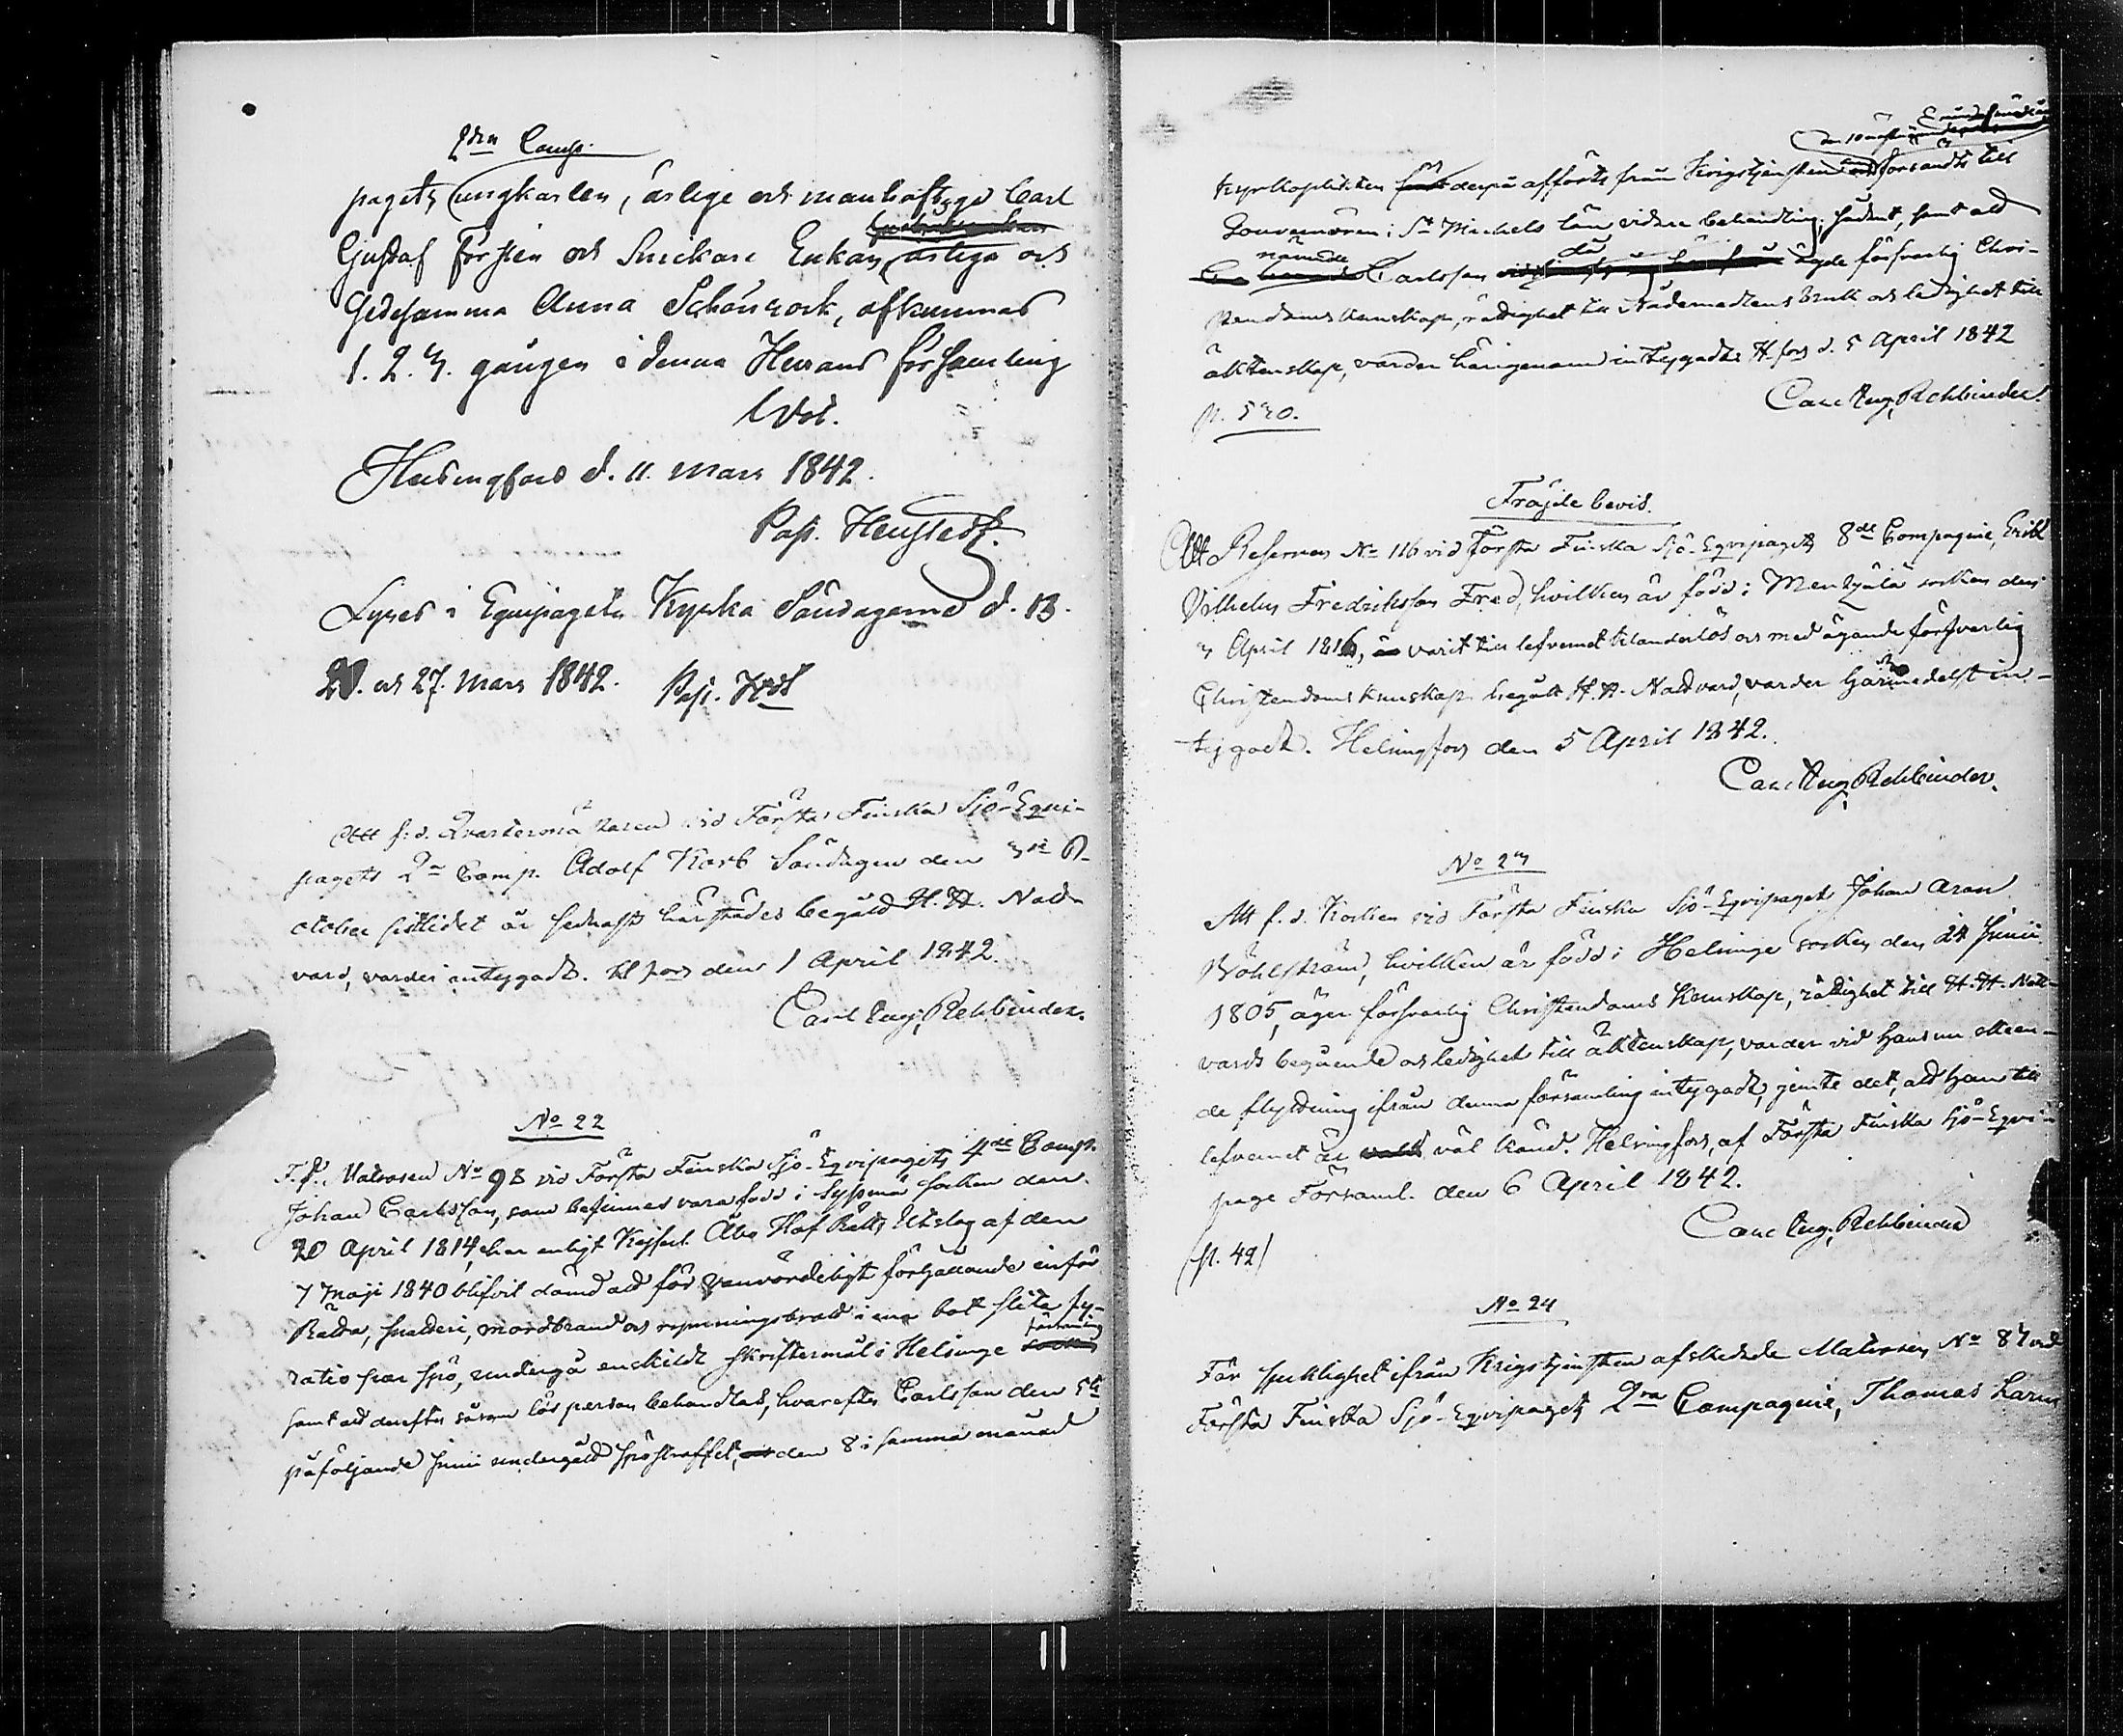 2dra Comp.
pagets ungkarlen, ärlige och manhaftige Carl
Gustaf Forsten och Snickare Enkan, ärliga och
Gudesamma Anna Schönrock, afkunnas
1. 2. 3. gången i denna Herrans församling
Helsingfors d. 11. Mars 1842.
Past. Hengstedt.
Lyses i Equipagets Kyrka Söndagarne d. 13.
20. och 27. Mars 1842. Past. Hdt
Att f: d. Qvartermästaren vid Första Finska Sjö-Equi-
pagets 2a Comp. Adolf Korb Söndagen den 3de O-
ctober sistlidet år sednast härstädes begådt H. H. Natt-
vard, varder intygadt. H:fors den 1 April 1842.
Carl Aug. Rehbinder.
No 22
F. d. Matrosen No 98 vid Första Finska Sjö-Eqvipagets 4de Comp.
Johan Carlsson, som befinnes vara född i Syssmä socken den
20 April 1814, har enligt Kejserl. Åbo Hof Rätts Utslag af den
7 Maji 1840 blifvit dömd att för vanvördeligt förhållande inför
Rätta, snatteri, mordbrand och rymningsbrott i ena bot slita fy-
ratio par spö, undergå enskildt skriftermål i Helsinge församling
samt att derefter såsom lös person behandlas, hvarefter Carlsson den 5te
påföljande Junii undergådt spöstraffet, den 8 i samma månad
kyrkoplikten derpå afförts från Krigstjensten försändts till
Gouvernören i St Michels län vidare behandling, samt att
nämde Carlsson då ägde försvarlig Chri-
stendomskunskap, rättighet till Nådemedlens bruk och ledighet till
äktenskap, varder härigenom intygadt. H.fors d. 5 April 1842
Carl Aug. Rehbinder.
p. 530.
Fräjde bevis.
Att Reserven No 116 vid Första Finska Sjö-Eqvipagets 8de Compagnie, Erik
Vilhelm Fredriksson Fred, hvilken är född i Mentzälä socken den
3 April 1816, varit till lefvernet klanderlös och med ägande försvarlig
Christendomskunskap begått H. H. Nattvard, varder härmedelst in-
tygadt. Helsingfors den 5 April 1842.
Carl Aug. Rehbinder.
No 23
Att f. d. Kocken vid Första Finska Sjö-Eqvipaget Johan Aron
Wöhlström, hvilken är född i Helsinge socken den 24 Junii
1805, äger försvarlig Christendoms Kunskap, rättighet till H. H. Natt-
vards begående och ledighet till äktenskap, varder vid hans nu skeen-
de flyttning ifrån denna församling intygadt, jemte det, att han till
lefvernet är väl känd. Helsingfors, af Första Finska Sjö-Eqvi-
page Församl. den 6 April 1842.
Carl Aug. Rehbinder
p. 42
No 24
För sjuklighet ifrån Krigstjensten afskedade Matrosen No 87 vid
Första Finska Sjö-Eqvipagets 2ra Compagnie, Thomas